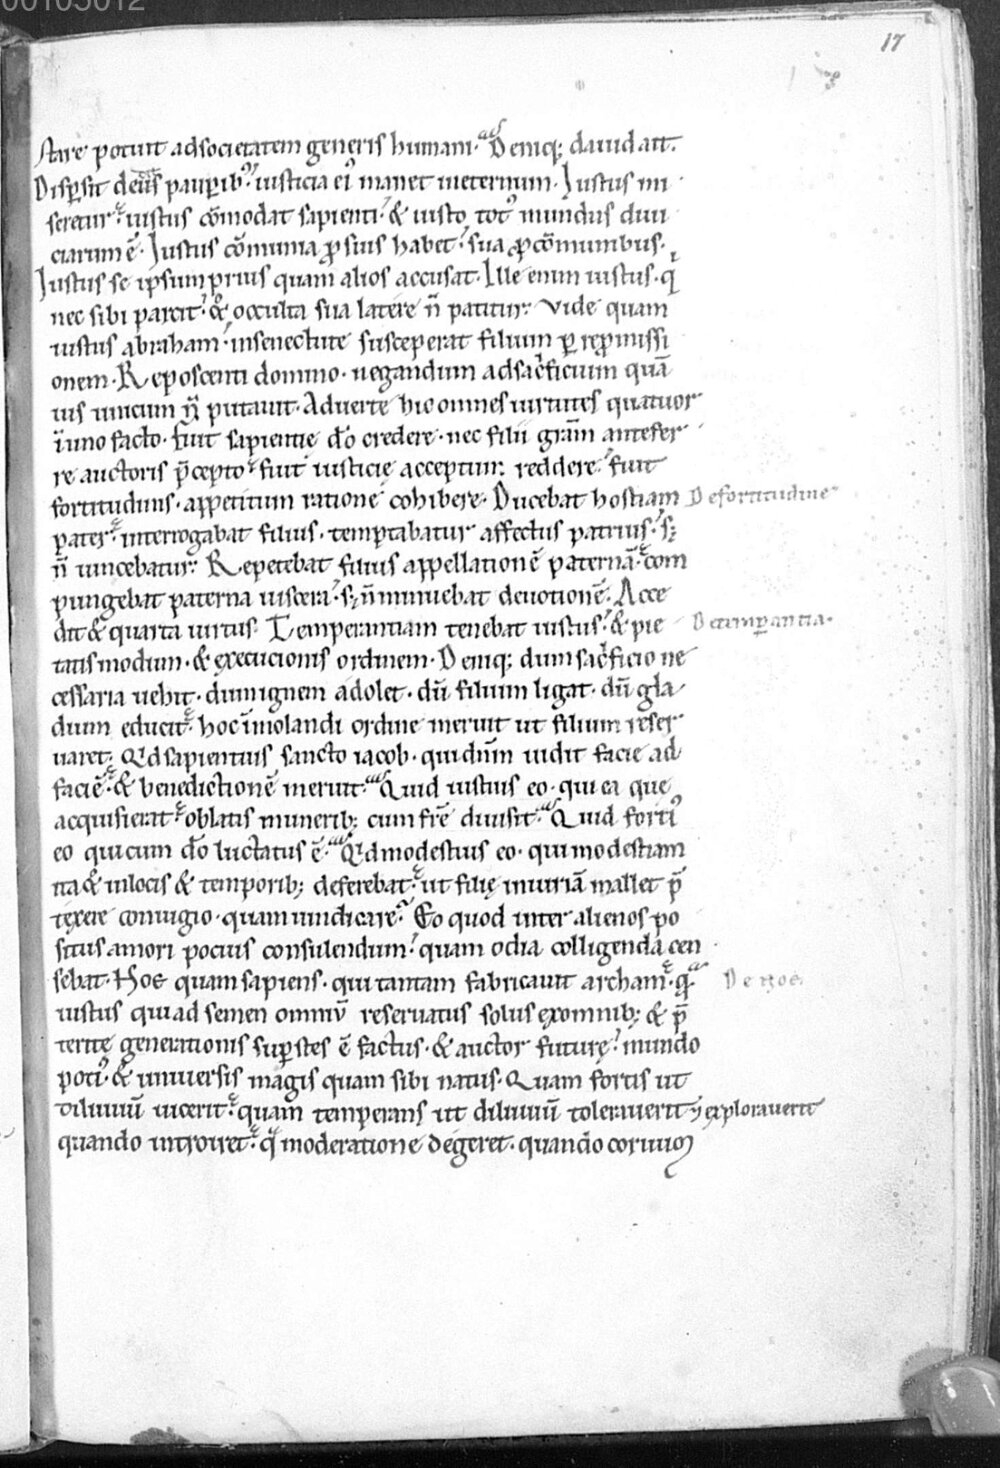 00105012
17
stare potuit ad societatem generis humani. Denicq; dauid ait.
Disp̄sit deus paup̄ib; iusticia ei' manet in eternum. Iustus mi
seretur. iustus cōmodat sapienti. & iusto tot' mundus diui
ciarum ē. Iustus cōmunia ꝓ suis habet. sua ꝓ cōmunibus.
Iustus se ipsum prius quam alios accusat. Ille enim iustus. qi
nec sibi parcit. & occulta sua latere n̄ patitur. Vide quam
iustus abraham. in senectute susceperat filium ꝑ repromissi
onem. Reposcenti domino. negandum ad sacrificium quā
uis unicum n̄ putauit. Aduerte hic omnes uirtutes quatuor
ī uno facto. fuit sapientię dō credere. nec filii grām antefer
re auctoris p̄cepto. fuit iusticię acceptum reddere. fuit
fortitudinis. appetitum ratione cohibere. Ducebat hostiam De fortitudine
pater. interrogabat filius. temptabatur affectus patrius. s;
n̄ uincebatur. Repetebat filius appellationē paternā. com
pungebat paterna uiscera. s; n̄ minuebat deuotionē. Acce
dit & quarta uirtus. Temperantiam tenebat iustus. & pie De temꝑantia.
tatis modum. & execucionis ordinem. Deniq; dum sacrificio ne
cessaria uehit. dum ignem adolet. dū filium ligat. dū gla
dium educit. hoc īmolandi ordine meruit ut filium reser
uaret. Qd sapientius sancto iacob. qui dūm uidit facie ad
faciē. & benedictionē meruit. Quid iustius eo. qui ea que
acquisierat. oblatis munerib; cum fr̄e diuisit. Quid forti'
eo qui cum dō luctatus ē. Qd modestius eo. qui modestiam
ita & in locis & temporib; deferebat. ut filię iniuriā mallet p̄
texere coniugio. quam uindicare. Eo quod inter alienos po
situs amori pocius consulendum. quam odia colligenda cen
sebat. Noe quam sapiens. qui tantam fabricauit archam. q̄ De noe.
iustus qui ad semen omniū reseruatus solus ex omnib; & p̄
teritę generationis sup̄stes ē factus. & auctor futurę. mundo
poti' & uniuersis magis quam sibi natus. Quam fortis ut
diluuiū uicerit. quam temperans ut diluuiū tolerauerit exploraverit
quando introiret. q̄ moderatione degeret. quando coruum